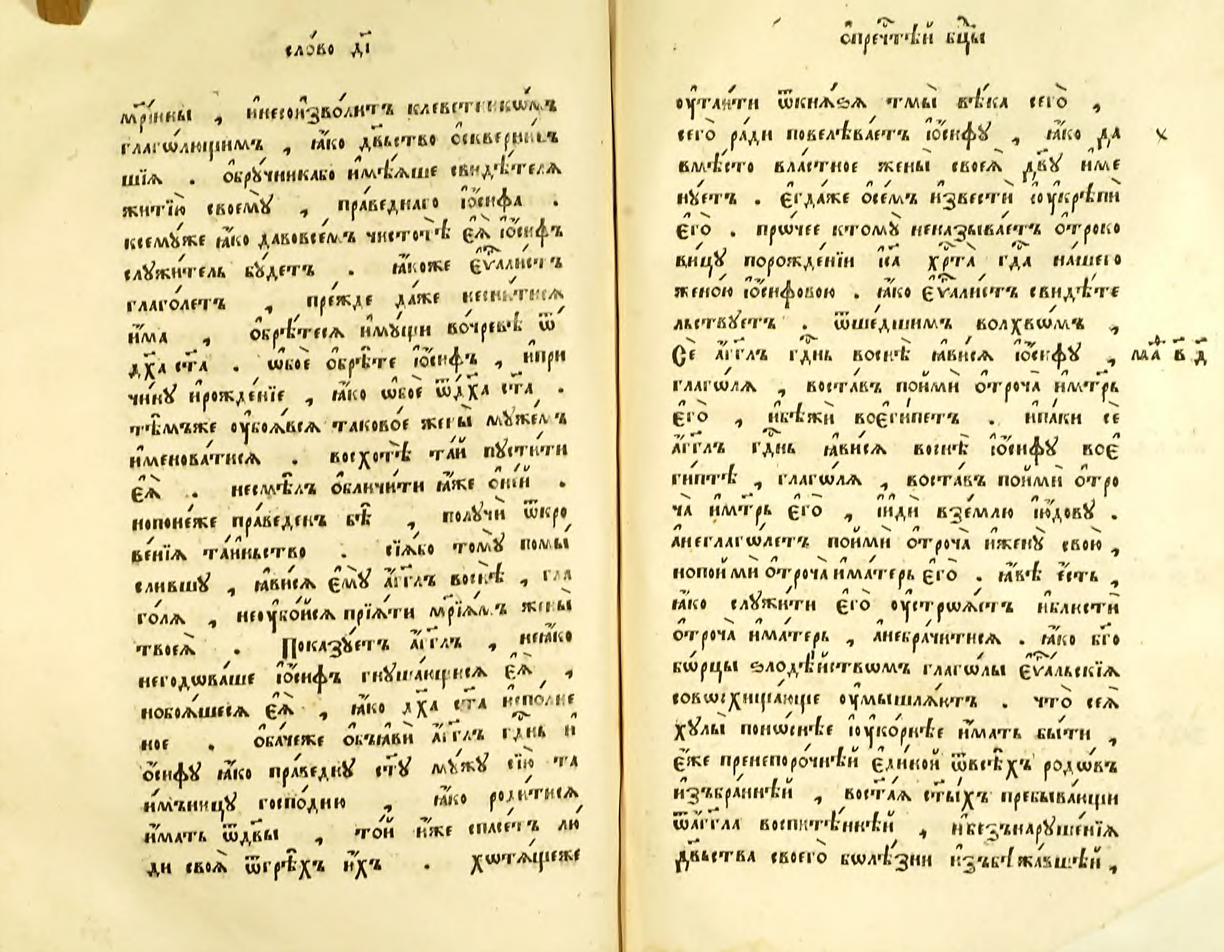 сло́во д҃і
мр҃і́ины , и҆несоизво́литъ клеветникѡ́мъ
глаго́лющимъ , ꙗ҆́ко дв҃ьство ѡ҆скверни́въ
шїѧ . ѻ҆брꙋ́чникабо и҆мѣ́ѧше свидѣ́телѧ
житїю̀ своемꙋ̀ , пра́веднаго і҆ѡ́сифа .
ксемꙋ́же ꙗ҆́ко давовсе́мъ чистотѣ̀ є҆ѧ̀ і҆ѡ́сифъ
слꙋжи́тель бꙋ́детъ . ꙗ҆́коже є҆ѵⷢ҇али́стъ
глаго́летъ , пре́жде да́же неснитисѧ
и҆́ма , ѡ҆брѣ́тесѧ и҆мꙋ́щи во́чревѣ ѿ
дх҃а ст҃а . ѡ҆бое ѡ҆брѣ́те і҆ѡ́сифъ , и҆при
чи́нꙋ и҆рожде́нїе , ꙗ҆́ко ѡ҆бое ѿдх҃а ст҃а .
тѣ́мъже ᲂу҆боѧ́всѧ таково́е жены̀ мꙋ́жемъ
и҆менова́тисѧ . восхотѣ̀ та́й пꙋсти́ти
є҆ѧ̀ . несмѣ́лъ ѡ҆бличи́ти ꙗ҆́же ѻ҆ні́й .
нопоне́же пра́веденъ бѣ̀ , полꙋчѝ ѿкро
ве́нїѧ та́иньство . сїѧ́бо томꙋ̀ помы́
слившꙋ , ꙗ҆ви́сѧ є҆мꙋ̀ а҆́гг҃лъ воснѣ̀ , гла
го́лѧ , неꙋбо́йсѧ прїѧ́ти мр҃і́амъ жены̀
твоеѧ̀ . Пока́зꙋетъ а҆́гг҃лъ , неꙗ҆́ко
негодѡва́ше і҆ѡ́сифъ гнꙋша́ющисѧ є҆ѧ̀ ,
нобоѧ́шесѧ є҆ѧ̀ , ꙗ҆́ко дх҃а ст҃а и҆спо́лне
ное . ѻ҆ба́чеже ѻ҆бъꙗ҆вѝ а҆́гг҃лъ гдⷭ҇нь и҆
ѻ҆́сифꙋ ꙗ҆́ко пра́веднꙋ ст҃ꙋ мꙋ́жꙋ сїю̀ та
и҆мъницꙋ госпо́днюю , ꙗ҆́ко роди́тисѧ
и҆́мать ѿдв҃ы , то́й и҆́же спасе́тъ лю́
ди своѧ̀ ѿгрѣ̑хъ и҆́хъ . хѡтѧ́щеже
ѡ҆пречⷭ҇тѣй бц҃ы
ᲂу҆таи́ти ѿкнѧ́ѕѧ тмы̀ вѣ́ка сегѡ̀ ,
сегѡ̀ ра́ди повелѣва́етъ і҆ѡ́сифꙋ , ꙗ҆́ко да
х
вмѣ́сто вла́стное жены̀ своеѧ̀ дв҃ꙋ и҆ме
нꙋ́етъ . є҆гда́же ѡ҆се́мъ и҆звестѝ і҆ᲂу҆крѣпѝ
є҆го̀ . про́чее ктомꙋ̀ненаꙁыва́етъ ѻ҆троко
ви́цꙋ порожде́нїи і҆с҃а хрⷭ҇та̀ гдⷭ҇а на́шего
жено́ю і҆ѡ́сифовою . ꙗ҆́ко є҆ѵⷢ҇али́стъ свидѣ́те
льствꙋетъ . ѿше́дшимъ волхвѡ́мъ ,
Сѐ а҆́гг҃лъ гдⷭ҇нь воснѣ̀ ꙗ҆ви́сѧ і҆ѡ́сифꙋ ,
маⷴ҇ в҃ д҃
глаго́лѧ , воста́въ поймѝ ѻ҆троча̀ и҆мт҃рь
є҆гѡ̀ , и҆бѣжѝ воє҆ги́петъ . и҆па́ки сѐ
а҆́гг҃лъ гдⷭ҇нь ꙗ҆ви́сѧ воснѣ̀ і҆ѡ́сифꙋ воє҆
ги́птѣ , глаго́лѧ , воста́въ поймѝ ѻ҆тро
ча̀ и҆мт҃рь є҆гѡ̀ , и҆идѝ взе́млю і҆ю́довꙋ .
а҆неглаго́летъ поймѝ ѻ҆троча̀ и҆женꙋ̀ свою̀ ,
нопоймѝ ѻ҆троча̀ и҆ма́терь є҆гѡ̀ . ꙗ҆́вѣ є҆́сть ,
ꙗ҆́ко слꙋжи́ти є҆гѡ̀ ᲂу҆строѧ́етъ и҆блюстѝ
ѻ҆троча̀ и҆ма́терь , а҆небра́читисѧ . ꙗ҆́ко бг҃о
бо́рцы ѕлодѣ́йствомъ глаго́лы є҆ѵⷢ҇альскїѧ
совосхища́юще ᲂу҆мышлѧ́ютъ . что̀ сеѧ̀
хꙋлы̀ поно́снѣе і҆ᲂу҆ко́рнѣе и҆́мать бы́ти ,
є҆́же пренепоро́чнѣй є҆ди́ной ѿвсѣ́хъ родѡ́въ
и҆зъбра́ннѣй , востаѧ̀ ст҃ы́хъ пребыва́ющи
ѿа҆́гг҃ла воспитѣ́ннѣй , и҆безънарꙋше́нїѧ
дв҃ьства своегѡ̀ болѣ́зни и҆зъбѣжа́вшѣй ,